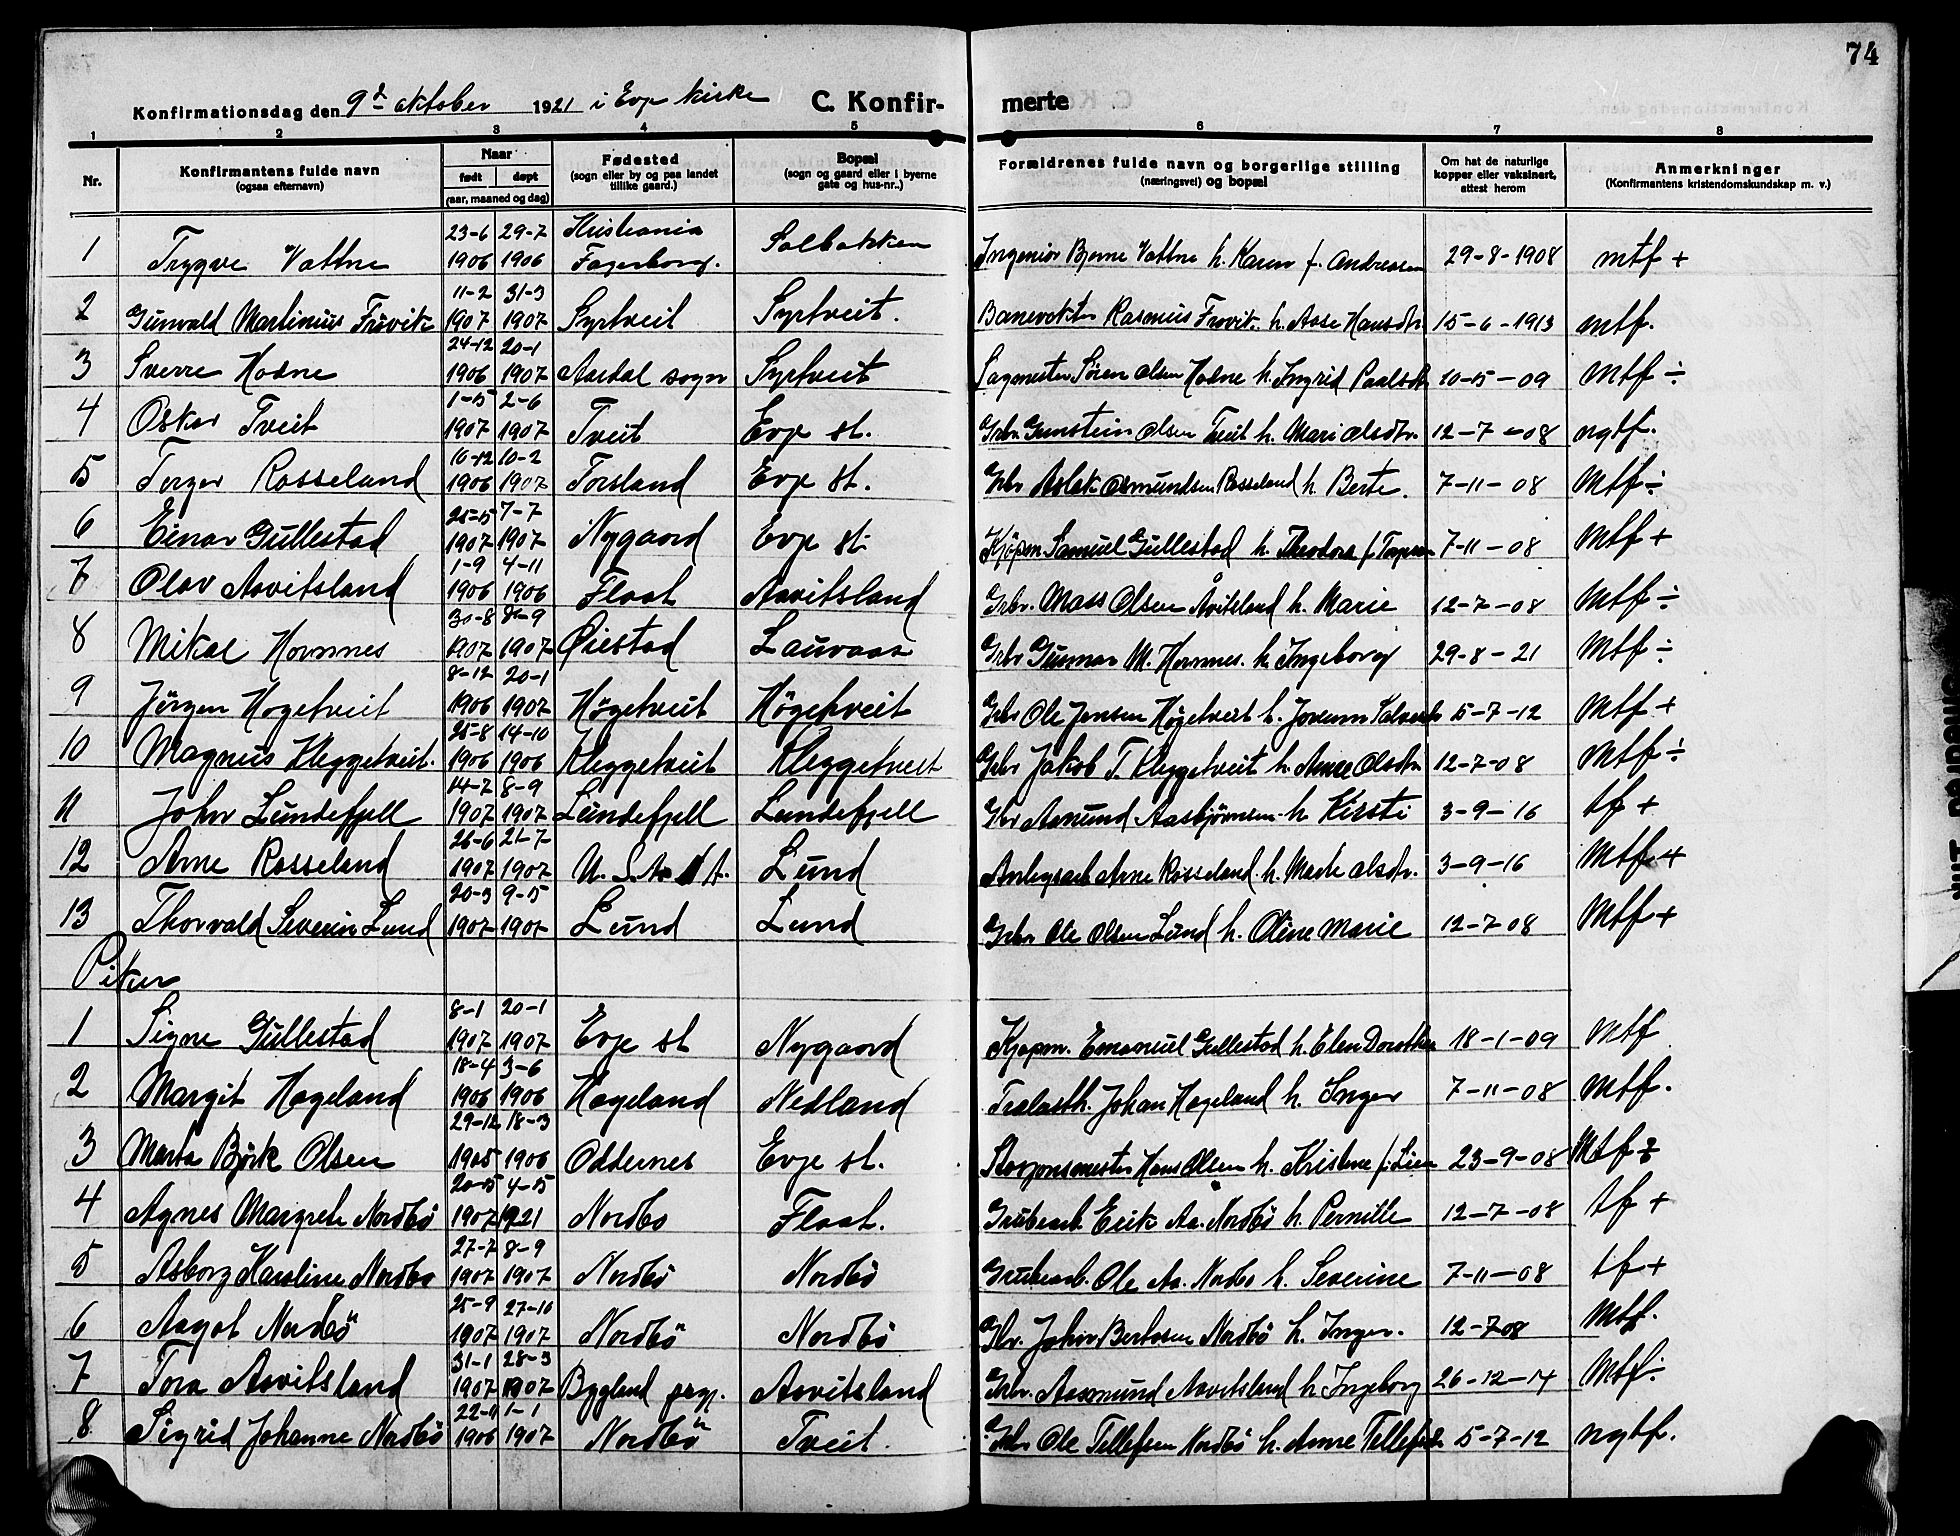 74
Konfirmationsdag den 9de oktober 1921 i Evje kirke C. Konfir- merte
1 2 3 4 5 6 7 8
Nr. Konfirmantens fulde navn (ogsaa efternavn) Naar født døpt (aar, maaned og dag) Fødested (sogn eller by og paa landet tillike gaard.) Bopæl (sogn og gaard eller i byerne gate og hus-nr..) Forældrenes fulde navn og borgerlige stilling (næringsvei) og bopæl Om hat de naturlige kopper eller vaksinert, attest herom Anmerkninger (Konfirmantens kristendomskundskap m. v.)
1 Trygve Vattne 23-6 1906 29-7 1906 Kristiania Fagerborg. Solbakken Ingeniør Bjarne Vattne h. Karen f. Andresen 29-8-1908 mtf +
2 Gunvald Martinius Frøvik 11-2 1907 31-3 1907 Syrtveit Syrtveit. Banevokter Rasmus Frøvik h. Aase Hansdtr. 15-6-1913 mtf.
3 Sverre Hodne 24-12 1906 20-1 1907 Aardal sogn Syrtveit Sagmester Søren Olsen Hodne h. Ingrid Paalsdtr 10-5-09 Mtf ÷
4 Oskar Tveit 1-5 1907 2-6 1907 Tveit Evje st. Grbr. Gunstein Olsen Tveit h. Mari Olsdtr. 12-7-08 ngtf.
5 Terger Rosseland 10-12 1906 10-2 1907 Forsland Evje st. Grbr Aslak Osmundsen Rosseland h Berte. 7-11-08 Mtf ÷
6 Einar Gullestad 25-5 1907 7-7 1907 Nygaard Evje st. Kjøpm. Samuel Gullestad h. Theodora f. 7-11-08 Mtf +
7 Olav Aavitsland 1-9 1906 4-11 1906 Flaat Aavitsland Grbr. Mass Olsen Åvitsland h. Marie 12-7-08 Mtf ÷
8 Mikal Hornnes 30-8 1907 -9 1907 Øiestad Lauvaas Grbr Gunnar M. Hornnes. h. Ingeborg 29-8-21 Mtf ÷
9 Jörgen Högetveit 8-12 1906 20-1 1907 Högetveit Högetveit Grbr Ole Jensen Högetveit h. Jorunn 5-7-12 Mtf +
10 Magnus Kleggetveit. 25-8 1906 14-10 1906 Kleggetveit Kleggetveit Grbr Jakob T. Kleggetveit h. Anne Olsdtr 12-7-08 Mtf ÷
11 John Lundefjell 14-7 1907 8-9 1907 Lundefjell Lundefjell Gbr Aanund Aasbjörnsen h. Kirsti 3-9-16 tf +
12 Arne Rosseland 26-6 1907 21-7 1907 U. S. A. Lund Anlegsarb Arne Rosseland h. Marte Olsdtr. 3-9-16 Mtf +
13 Thorvald Severin Lund 20-3 1907 9-5 1907 Lund Lund Grbr Ole Olsen Lund h. Oline Marie 12-7-08 Mtf +
Piker
1 Signe Gullestad 8-1 1907 20-1 1907 Evje st Nygaard Kjøpm. Emanuel Gullestad h. Elen Dorothea 18-1-09 Mtf
2 Margit Hageland 18-4 1906 3-6 1906 Hageland Nedland Tralasth. Johan Hageland h. Inger 7-11-08 Mtf.
3 Marta Björk Olsen 29-12 1905 18-3 1906 Oddernes Evje st. Stasjonsmester Hans Olsen h. Kristine f. Lien 23-9-08 Mtf ÷
4 Agnes Margrete Nordbö 20-5 1907 4-5 1921 Nordbo Flaat. Grubearb. Erik Aa. Nordbö h. Pernille 12-7-08 tf +
5 Asborg Karoline Nordbo 27-7 1907 8-9 1907 Nordbö Nordbö Grubearb. Ole Aa. Nordbo h. Severine 7-11-08 tf +
6 Aagot Nordbö 25-9 1907 27-10 1907 Nordbö Nordbö Gbr. Johan Bertosen Nordbö h. Inger. 12-7 08 Mtf.
7 Tora Aavitsland 31-1 1907 28-3 1907 Bygland prgj. Aavitsland Grbr. Aasmund Aavitsland h Ingeborg 26-12-14 Mtf ÷
8 Sigrid Johanne Nordbö 22-11 1906 1-1 1907 Nordbö Tveit. Grbr Ole Tellefsen Nordbö h. Anne Tellefsdtr 5-7-12 ngtf.